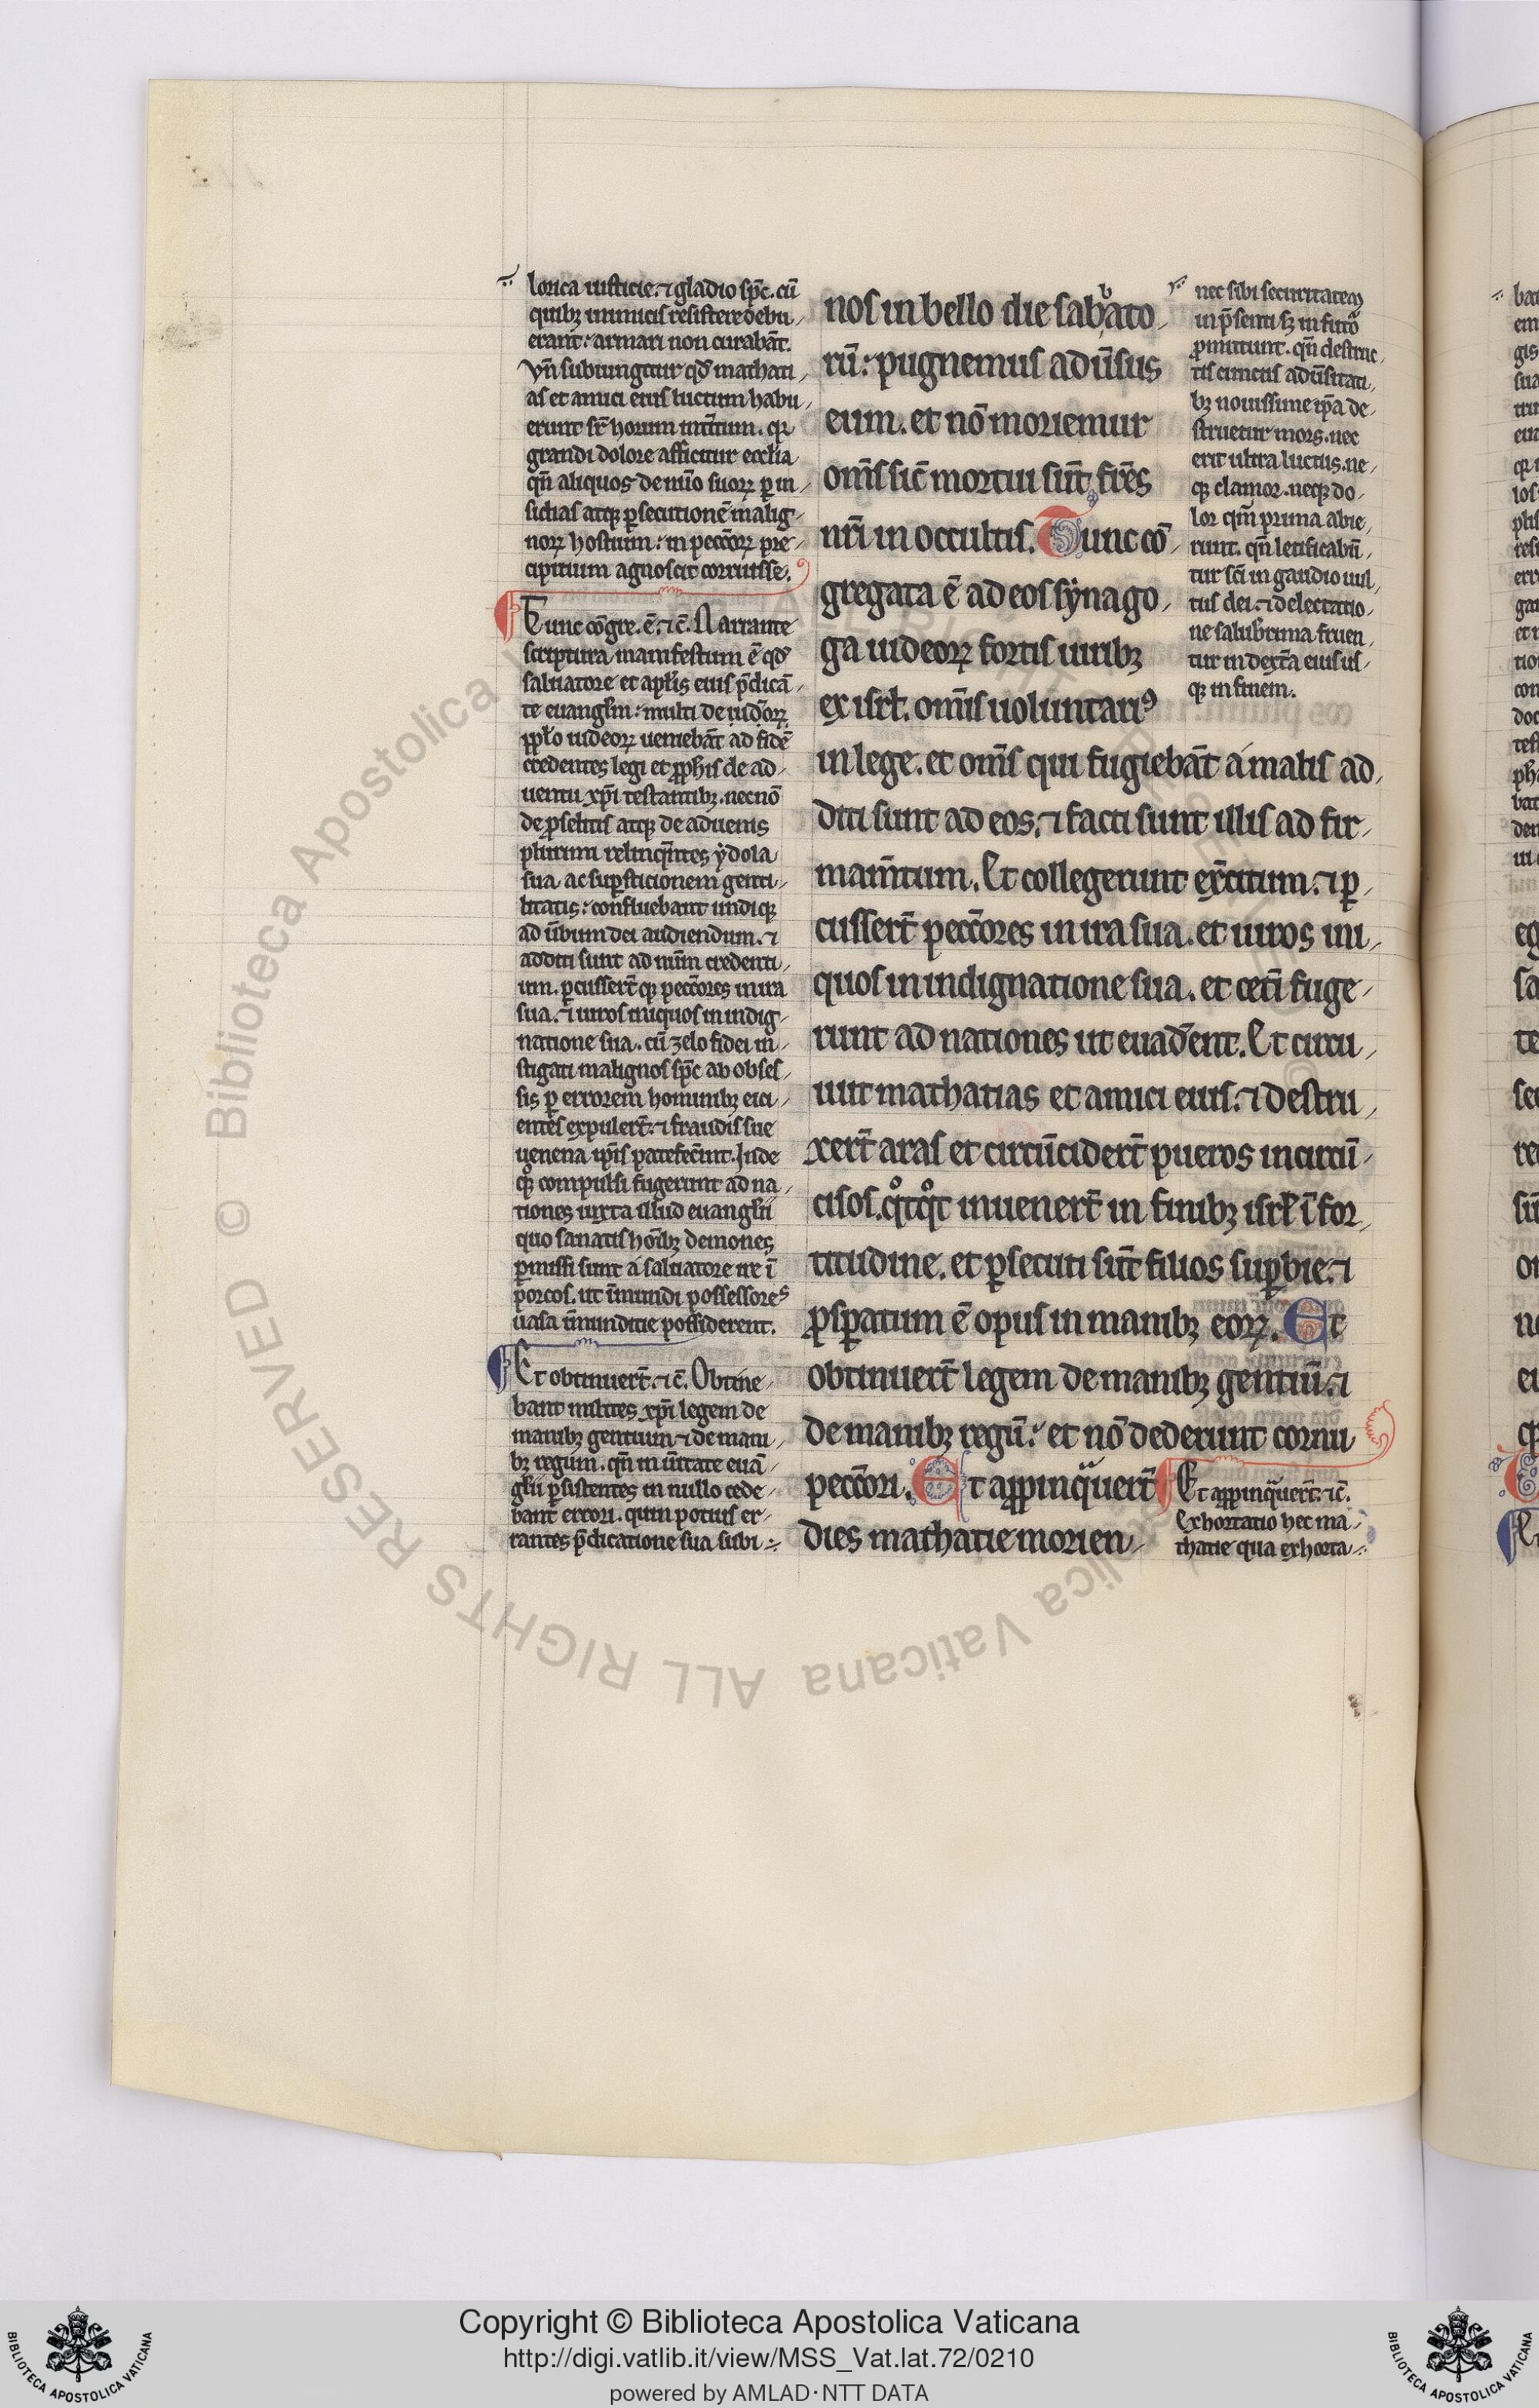 lorica iusticie. ⁊ gladio sp̄c. cū
quibꝫ inimicis resistere debu
erant: armari non curabāt.
Vn̄ subiungitur qd̕ mathati
as et amici eius luctum habu
erunt sr̄ horum int̄itum. qꝛ
grandi dolore afficitur eccl̄ia
qn̄ aliquos de nūo suoꝝ ꝑ in
sidias atqꝫ ꝑsecutionē malig
noꝝ hostium: in peccōꝝ pre
cipitium agnoscit corruisse.
Tunc cōgre. ē. ⁊c̄. Narrante
scriptura manifestum ē qd̕
saluatore et apl̄is eius p̄dicā
te euangl̄m: multi de iudeoꝝ
ppl̄o iudeoꝝ ueniebāt ad fidē
credentes legi et ꝓphis de ad
uentu xp̄i testantibꝫ. necnō
de ꝓselitis atqꝫ de aduenis
plurimi relinq̄ntes ẏdola
sua ac suꝑsticionem genti
litatis: confluebant undiqꝫ
ad ūbum dei audiendum. ⁊
additi sunt ad nūm credenti
um. ꝑcusser̄tqꝫ peccōres in ira
sua. ⁊ uiros iniquos in indig
natione sua. cū zelo fidei in
stigati malignos sp̄c ab obses
sis ꝑ errorem hominibꝫ eici
entes expuler̄t: ⁊ fraudis sue
uenena ip̄is patefec̄unt. Inde
qꝫ compulsi fugerunt ad na
tiones iuxta illud euangl̄ii
quo sanatis hōibꝫ demones
ꝑmissi sunt a saluatore ire ī
porcos. ut īmundi possessores
uasa īmunditie possiderent.
Et obtinuer̄t. ⁊c̄. Obtine
bant milites xp̄i legem de
manibꝫ gentium ⁊ de mani
bꝫ regum. qn̄ in ūitate euā
gl̄ii ꝑsistentes in nullo cede
bant errori. quin potius er
rantes p̄dicatione sua subi
nos in bello die sabbato
rū: pugnemus adūsus
eum. et nō moriemur
om̄s sic̄ mortui sūt fr̄es
nr̄i in occultis. Tunc cō
gregata ē ad eos sẏnago
ga iudeoꝝ fortis uiribꝫ
ex isrl̄. om̄is uoluntariꝰ
in lege. et om̄s qui fugiebāt a malis ad
diti sunt ad eos. ⁊ facti sunt illis ad fir
mam̄tum. Et collegerunt ex̄citum. ⁊ ꝑ
cusser̄t peccōres in ira sua. et uiros ini
quos in indignatione sua. et cet̄i fuge
runt ad nationes ut euad̄ent. Et circu
iuit mathatias et amici eius. ⁊ destru
xer̄t aras et circūcider̄t pueros incircū
cisos. qͦtqͦt inuener̄t in finibꝫ isrl̄ ī for
titudine. et ꝑsecuti sūt filios suꝑbie. ⁊
ꝓsꝑatum ē opus in manibꝫ eoꝝ. Et
obtinuer̄t legem de manibꝫ gentiū. ⁊
de manibꝫ regū: et nō dederunt cornu
peccōri. Et aꝓpinqᷓuer̄t
dies mathatie morien
nec sibi securitatem
in p̄senti sꝫ in futō
ꝓmittunt. qn̄ destruc
tis cunctis adūsitati
bꝫ nouissime ip̄a de
struetur mors. nec
erit ultra luctus. ne
qꝫ clamor. neqꝫ do
lor qm̄ prima abie
runt. qn̄ letificabū
tur sc̄i in gaudio uul
tus dei. ⁊ delectatio
ne saluberrima fruen
tur in dext̄a eius us
qꝫ in finem.
Et aꝓpinqᷓuer̄t. ⁊c̄.
Exhortatio hec ma
thatie qua exhorta
Copyright © Biblioteca Apostolica Vaticana
http://digi.vatlib.it/view/MSS_Vat.lat.72/0210
powered by AMLAD·NTT DATA
BIBLIOTECA APOSTOLICA VATICANA
BIBLIOTECA APOSTOLICA VATICANA